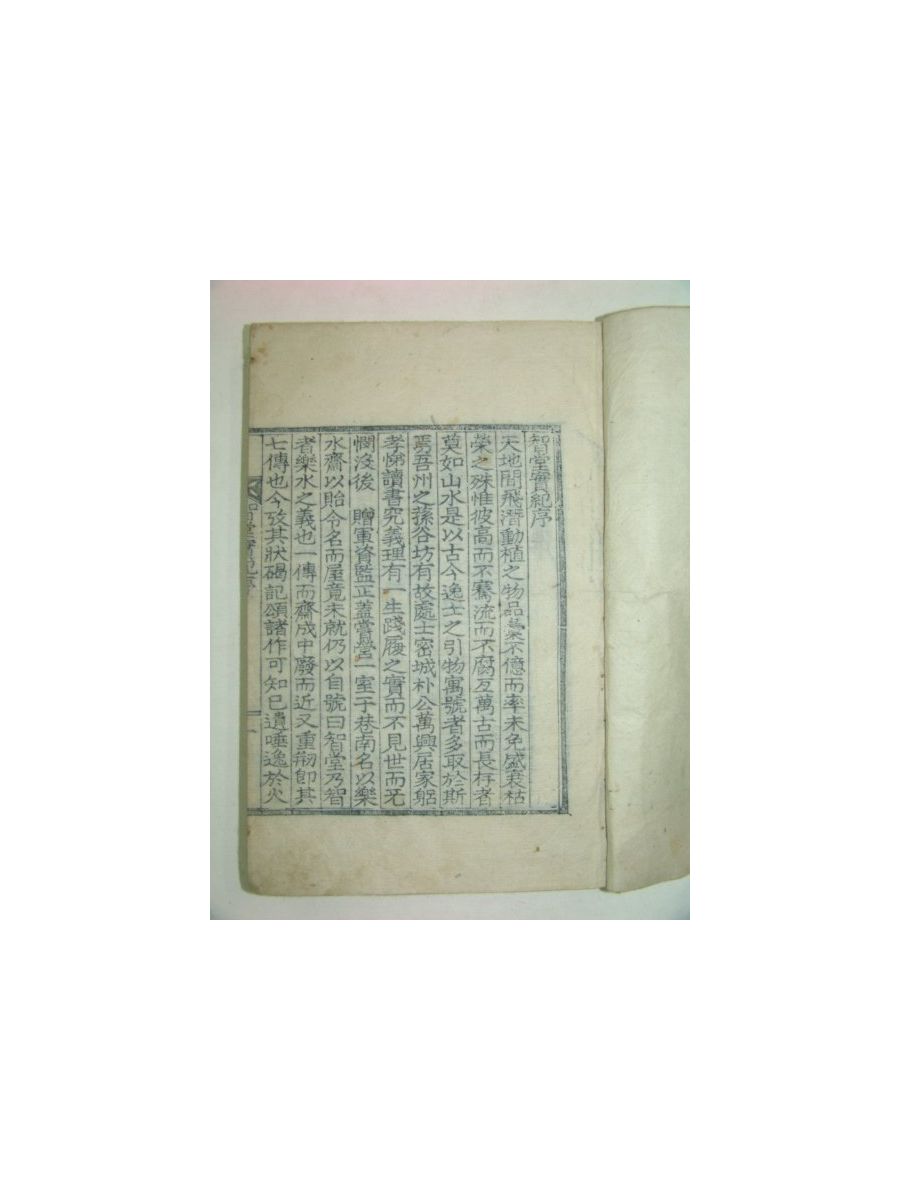 智堂實紀序
天地間飛潛動植之物品彙不億而率未免盛衰枯
榮之殊惟彼高而不騫流而不腐亙萬古而長存者
莫如山水是以古今逸士之引物寓號者多取於斯
焉吾州之蓀谷坊有故處士密城朴公萬興居家躬
孝悌讀書究義理有一生踐履之實而不見世而无
憫沒後 贈軍資監正蓋嘗營一室于巷南名以樂
水齋以貽令名而屋竟未就仍以自號曰智堂乃智
者樂水之義也一傳而齋成中廢而近又重刱卽其
七傳也今攷其狀碣記頌諸作可知已遺唾逸於火
智堂實紀序
一